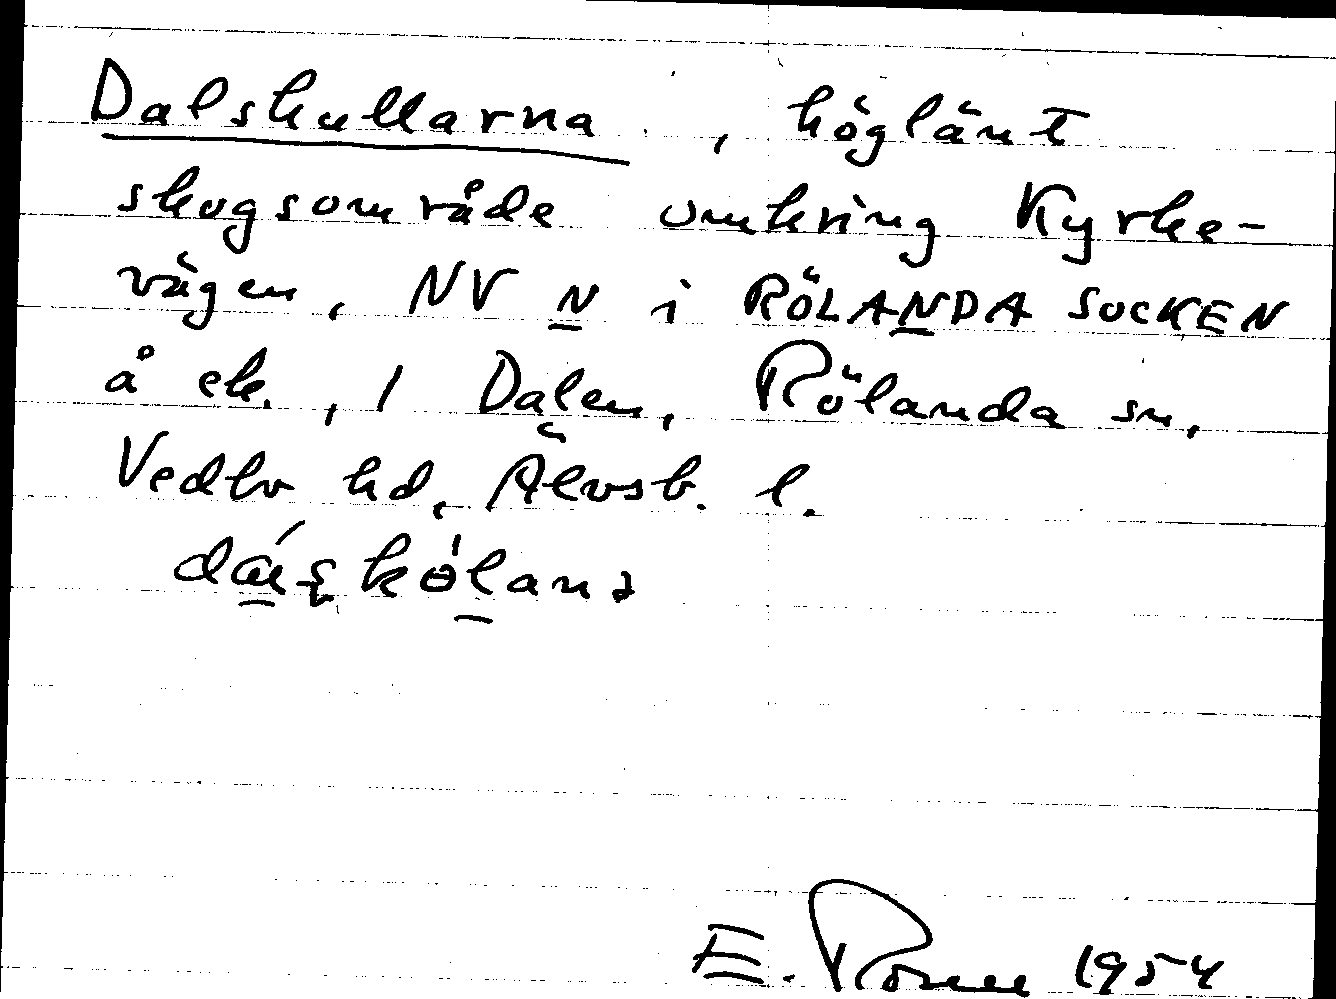 Dalskullarna, höglänt
skogsområde omkring Kyrke-
vägen, NV N i RÖLANDA SOCKEN
å ek., 1 Dalen, Rölanda sn,
Vedbo hd, Älvsb. l.
E. 1954